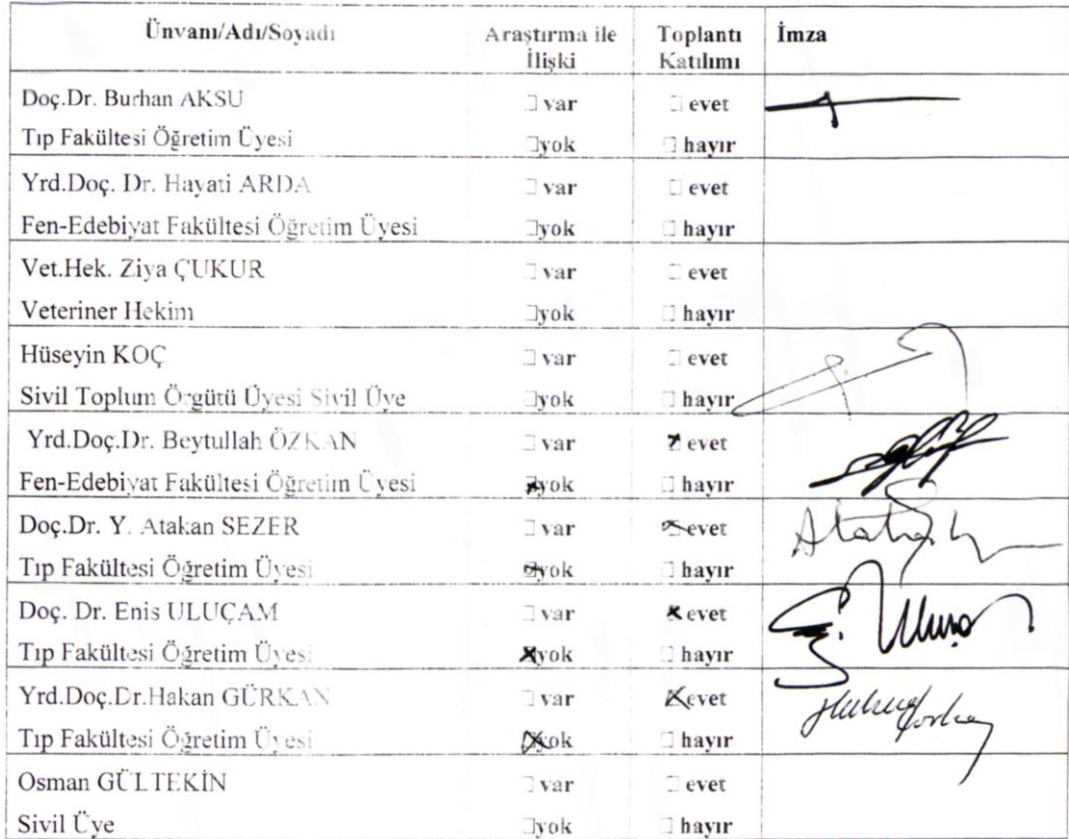 Ünvanı/Adı/Soyadı Araştırma ile İlişki Toplantı Katılımı İmza
Doç.Dr. Burhan AKSU var evet
Tıp Fakültesi Öğretim Üyesi yok hayır
Yrd.Doç. Dr. Hayati ARDA var evet
Fen-Edebiyat Fakültesi Öğretim Üyesi yok hayır
Vet.Hek. Ziya ÇUKUR var evet
Veteriner Hekim yok hayır
Hüseyin KOÇ var evet
Sivil Toplum Örgütü Üyesi Sivil Üye yok hayır
Yrd.Doç.Dr. Beytullah ÖZKAN var evet
Fen-Edebiyat Fakültesi Öğretim Üyesi yok hayır
Doç.Dr. Y. Atakan SEZER var evet
Tıp Fakültesi Öğretim Üyesi yok hayır
Doç. Dr. Enis ULUÇAM var evet
Tıp Fakültesi Öğretim Üyesi yok hayır
Yrd.Doç.Dr.Hakan GÜRKAN var evet
Tıp Fakültesi Öğretim Üyesi yok hayır
Osman GÜLTEKİN var evet
Sivil Üye yok hayır